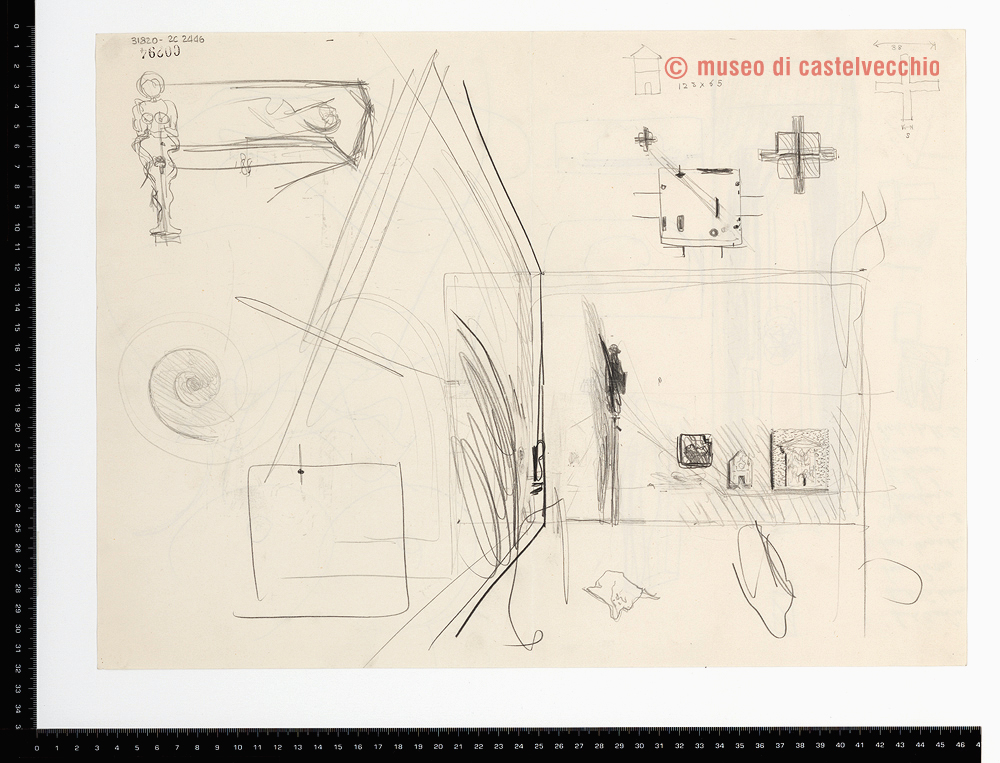 31820 - 2C 2446
00294
© museo di castelvecchio
38
123 x 65
0 1 2 3 4 5 6 7 8 9 10 11 12 13 14 15 16 17 18 19 20 21 22 23 24 25 26 27 28 29 30 31 32 33 34
0 1 2 3 4 5 6 7 8 9 10 11 12 13 14 15 16 17 18 19 20 21 22 23 24 25 26 27 28 29 30 31 32 33 34 35 36 37 38 39 40 41 42 43 44 45 46